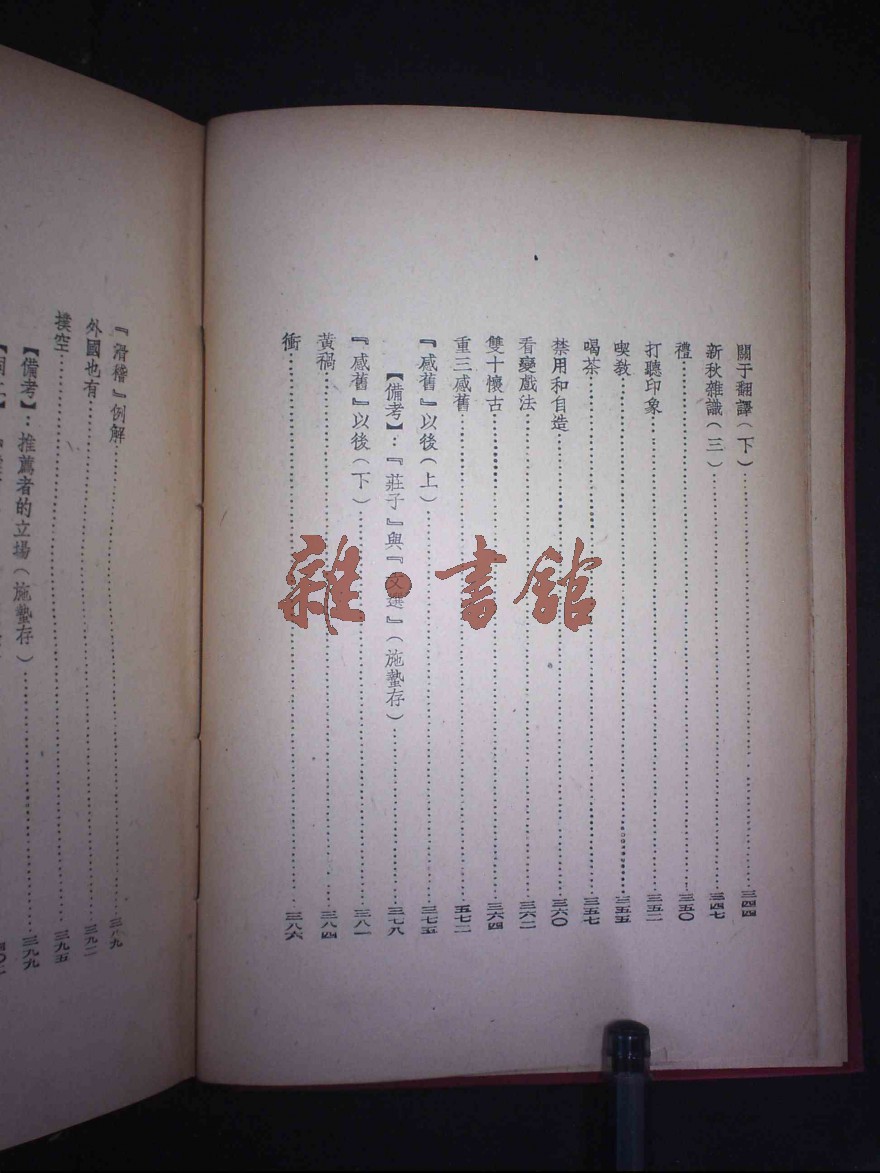 關于翻譯(下)……三四四
新秋雜識(三)……三四七
禮……三五〇
打聽印象……三五二
喫教……三五五
喝茶……三五七
禁用和自造……三六〇
看變戲法……三六二
雙十懷古……三六四
重三感舊……五七二
『感舊』以後(上)……三七五
【備考】：『莊子』與『文選』(施蟄存)……三七八
『感舊』以後(下)……三八一
黃禍……三八四
衝……三八六
『滑稽』例解……三八九
外國也有……三九二
撲空……三九五
【備考】：推薦者的立場(施蟄存)……三九九
雜·書館